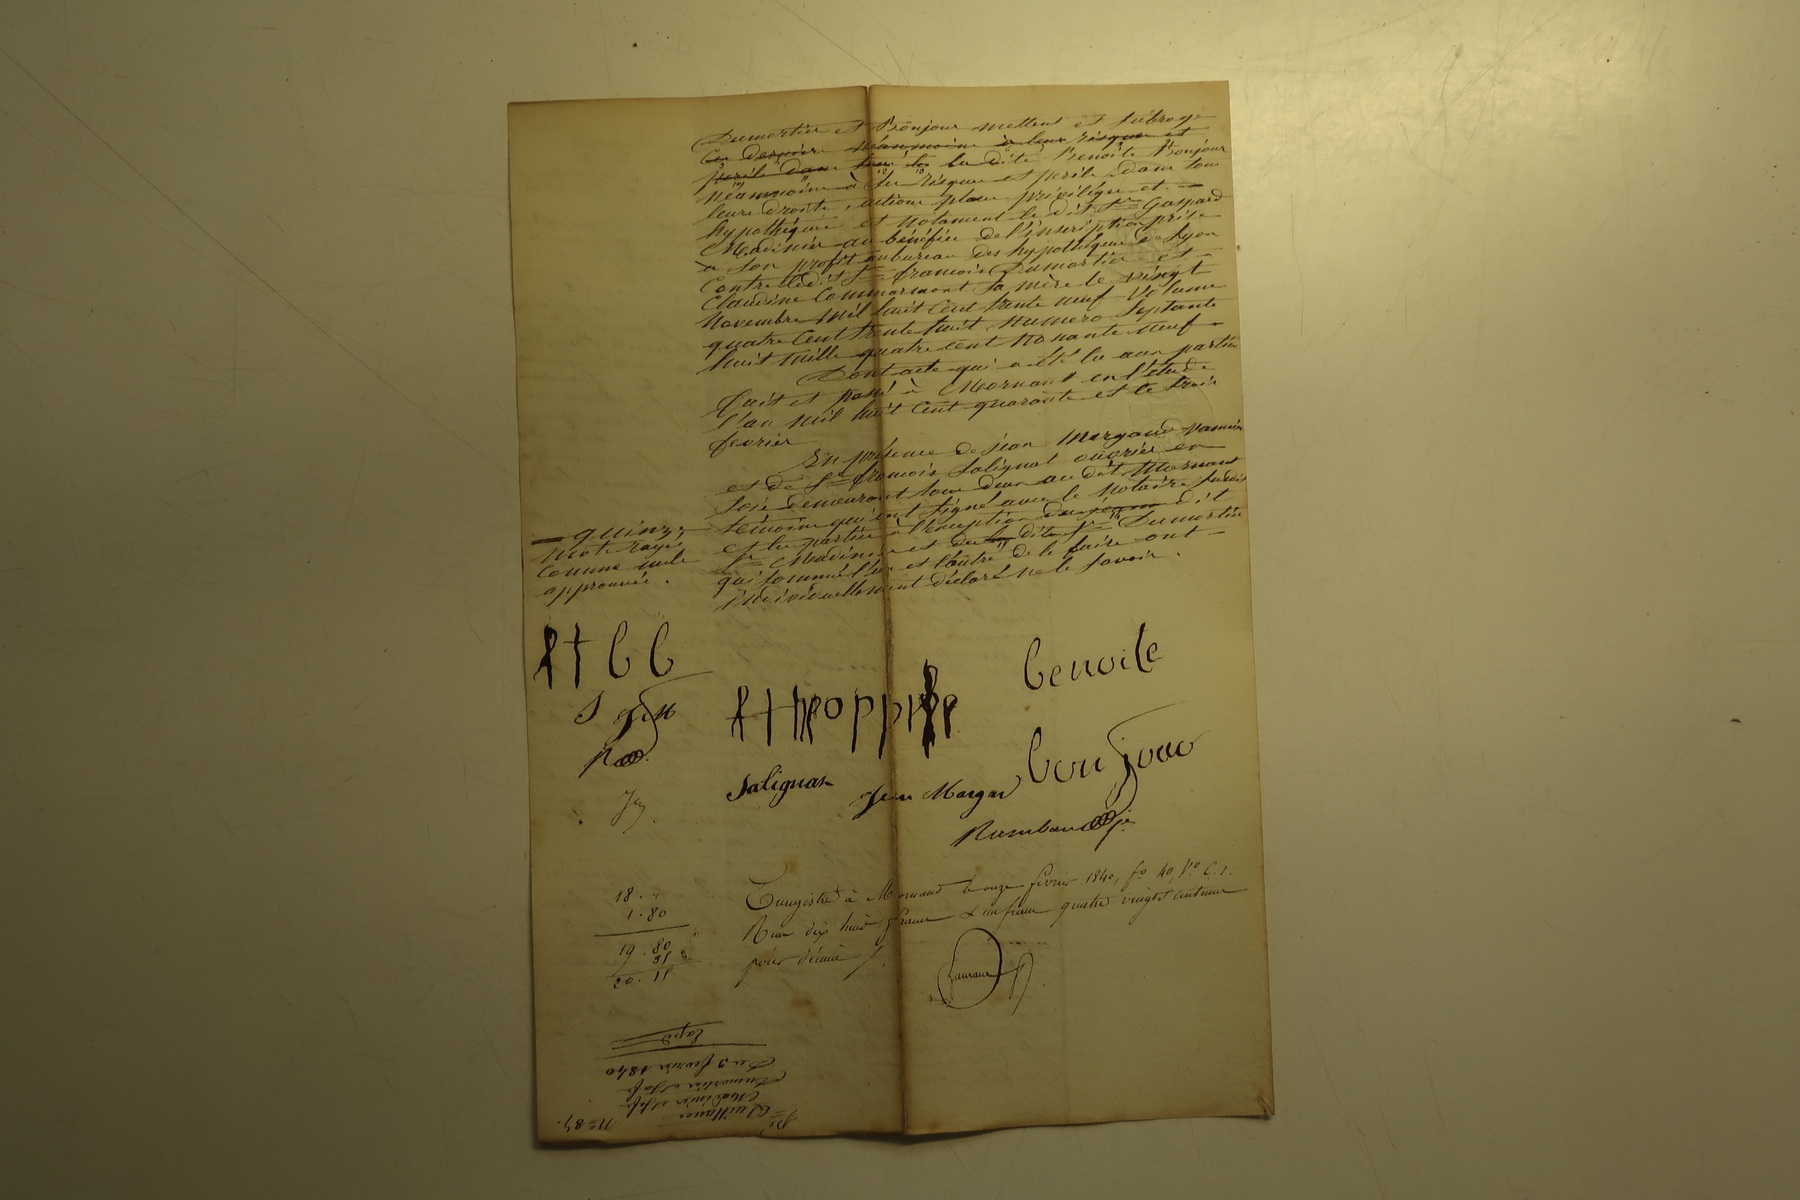 Dumortier et Bonjour mettent et subroge
Ce dernier néanmoins à leur risque et
peril dans tous les la dite Benoite Bonjour
néanmoins à ses risques et perils dans tous
leurs droits, actions place privilége et
hypothéques et notament le dit Sr Gaspard
Madinier au bénéfice de l'inscription prise
à son profit au bureau des hypothéques de Lyon
Contre lédit Sr françois Dumortier et
Claudine Commarmont sa mère le vingt
Novembre mil huit cent trente neuf Volume
quatre Cent trente huit Numero Septante
huit mille quatre cent nonante neuf
Dont acte qui a été lu aux parties
fait et passé à Mornant en l'étude
l'an mil huit Cent quarante et le trois
fevrier
En présence de jean Margand vannier
et de Sr françois Salignat ouvrier en
soie demeurant tous deux au dit Mornant
témoins qui ont signé avec le notaire susdit
et les parties à l'exception du dit
Sr Madinier et du dit Sr Dumortier
qui sommé l'un et l'autre de le faire ont
individuellement déclaré ne le savoir.
quinze
mots rayés
comme nuls
approuvés.
Benoite
bonjour
Salignat
Jean Margan
Enregistré à Mornant le onze fevrier 1840, fo 40, Vo C. 1.
Reçu dix huit francs & un franc quatre vingts centimes
pour décime
18 . "
1 . 80
19 . 80
35
20 . 15
No 84.
Quittance
Madinier
Dumortier
Du 3 fevrier 1840